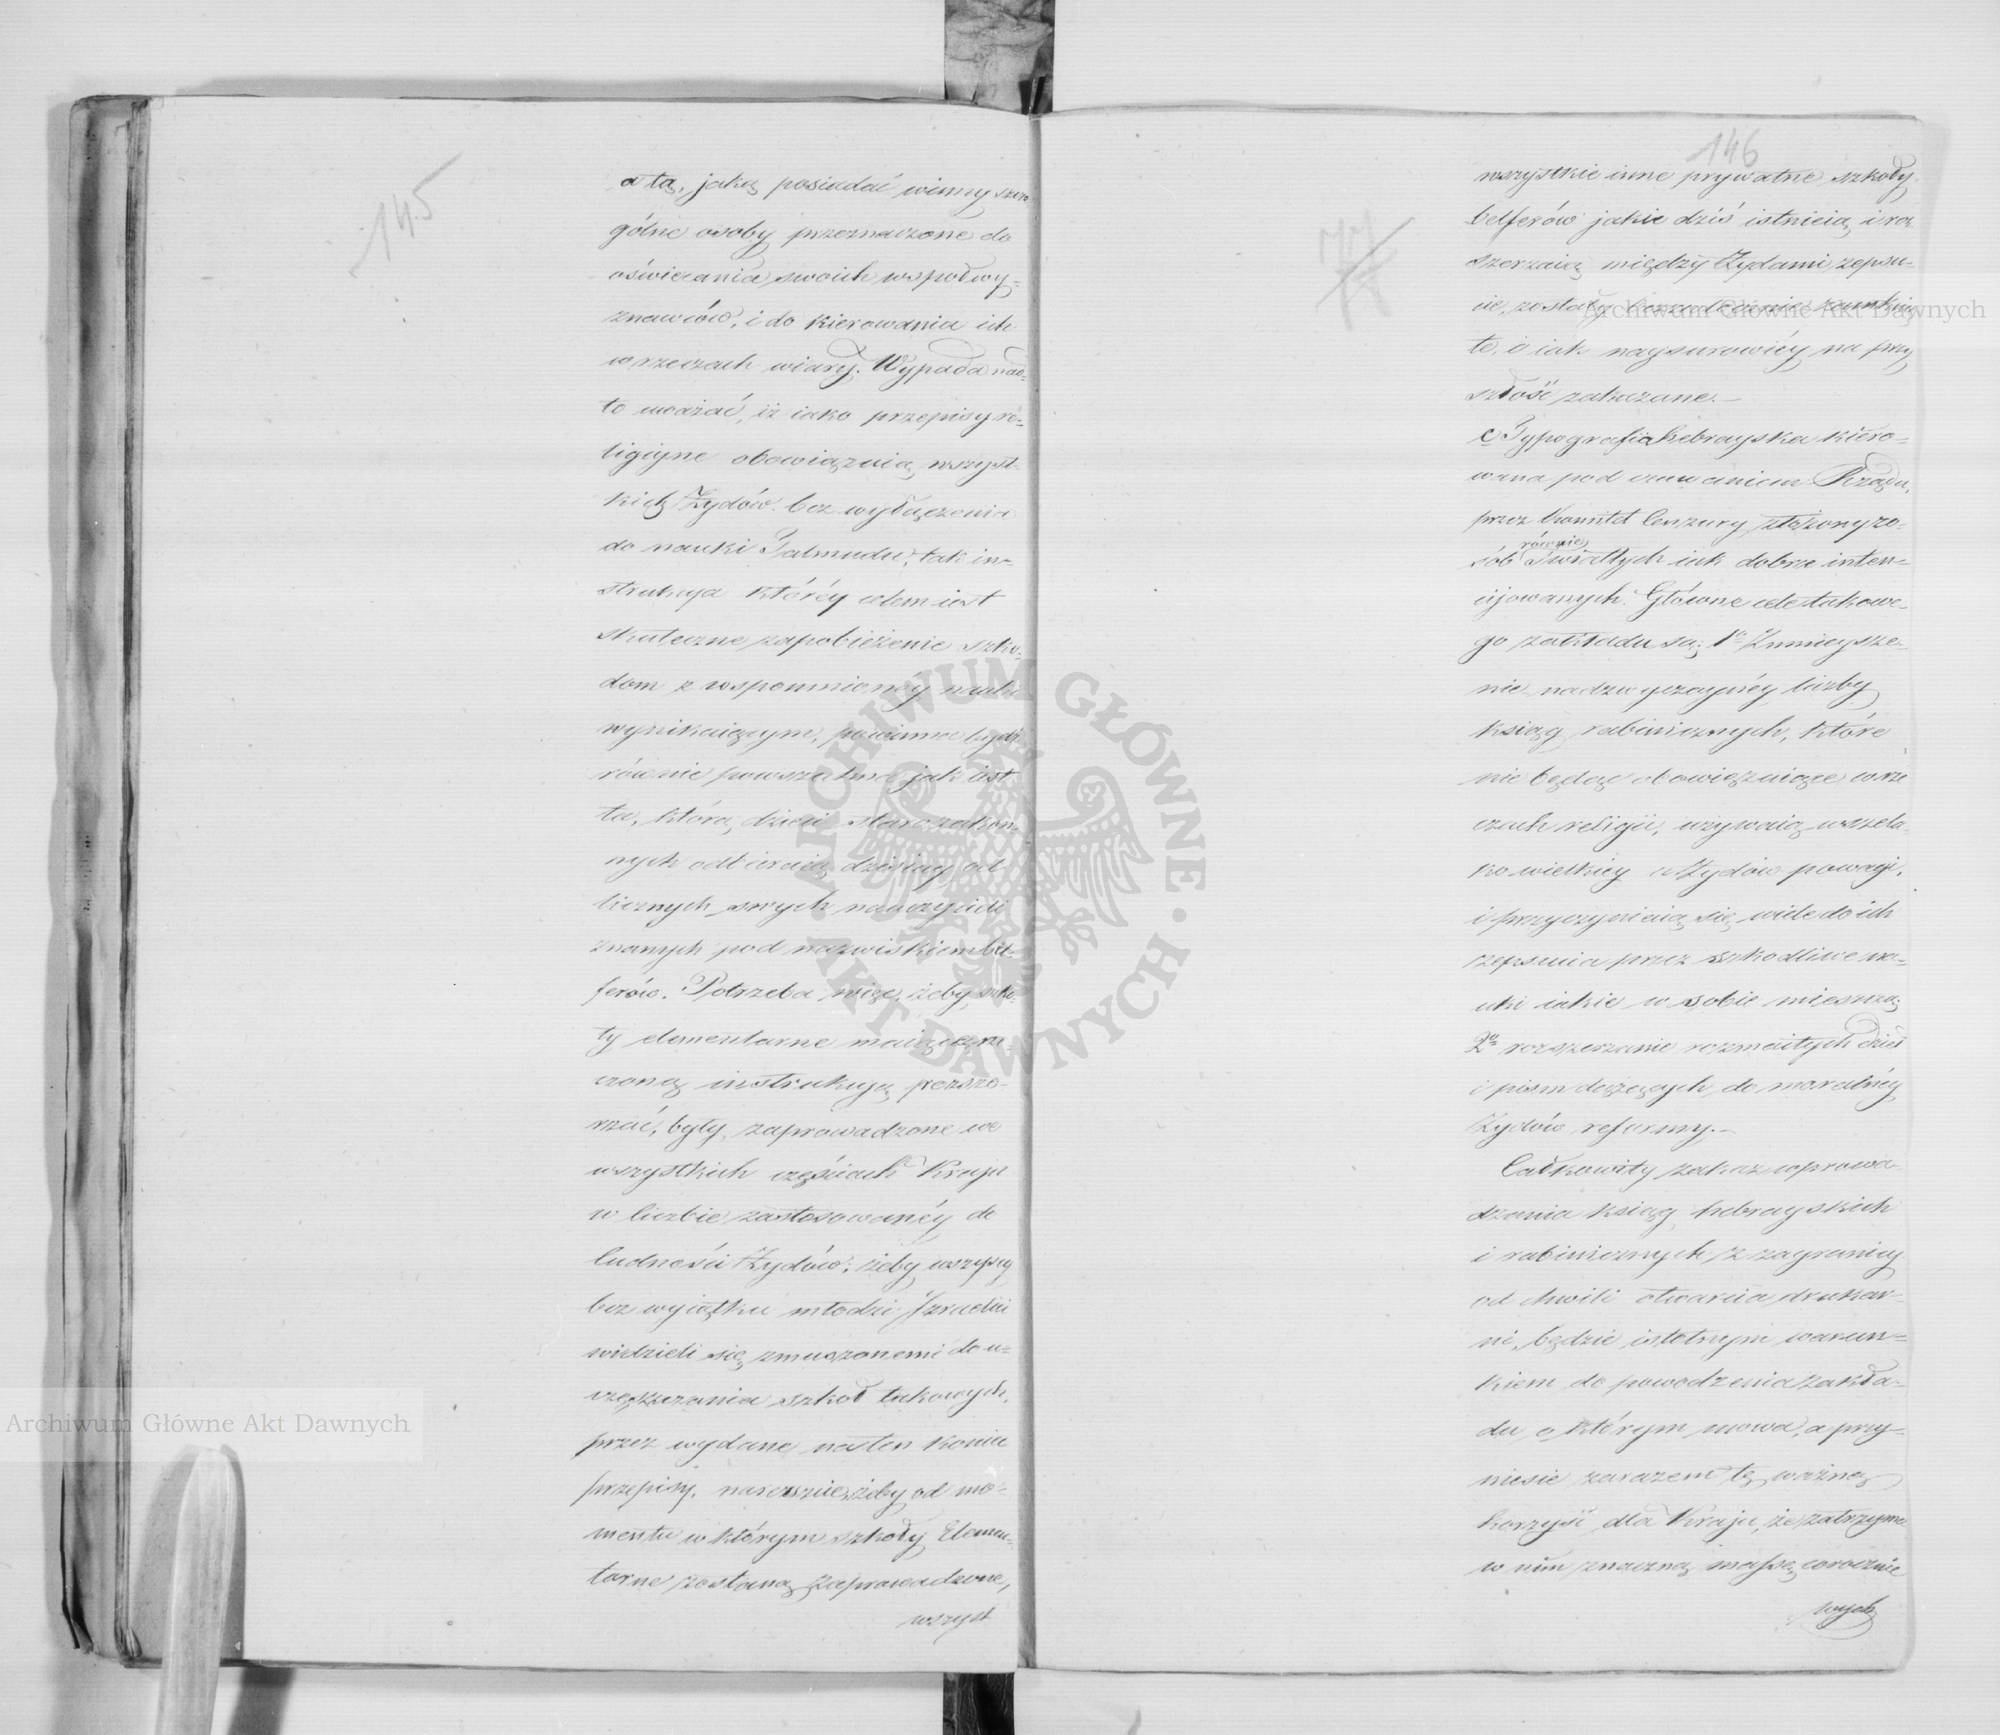 145
a tą, jaką posiadać winny szcze
gólne osoby przeznaczone do
oświecania swoich współwy=
znawców, i do kierowania ich
w rzeczach wiary. Wypada nad=
to uważać, iż iako przepisy re=
ligiyne obowiązuią wszyst=
kich Żydów bez wyłączenia
do nauki Talmudu, tak in=
strukcya któréy celem iest
skuteczne zapobieżenie szko=
dom z wspomnioney nauki
wynikaiącym, powinna bydź
równie powszechna jak iest
ta, którą dzieci starozakon=
nych odbieraią dzisiay od
licznych swych nauczycieli
znanych pod nazwiskiem bel=
ferów. Potrzeba więc, żeby szko=
ły elementarne maiące rze=
czoną instrukcyą rozsze=
rzać, były zaprowadzone we
wszystkich częściach Kraju
w liczbie zastosowanéy do
ludności Żydów; żeby wszyscy
bez wyiątku młodzi Izraelici
widzieli się zmuszonemi do u=
częszczania szkół takowych,
przez wydane na ten koniec
przepisy, nareszcie, żeby od mo=
mentu w którym szkoły Elemen=
tarne zostaną zaprowadzone,
wszyst
146
77
wszystkie inne prywatne szkoły
belferów jakie dziś istnieią i roz
szerzaią między Żydami zepsu=
cie, zostały bezwłocznie zamknię
te, i iak naysurowiéy na przy
szłość zakazane.—
c Typografia hebrayska kiero=
wana pod czuwaniem Rządu,
przez Komitet Cenzury złożony z o=
równie
sób światłych iak dobrze inten=
cijowanych. Główne cele takowe=
go zakładu są; 1o Zmnieysze=
nie nadzwyczaynéy liczby
ksiąg rabinicznych, które
nie będąc obowięzuiące w rze
czach religii, używaią wszela=
ko wielkiéy u Żydów powagi,
i przyczyniaią się wiele do ich
zepsucia przez szkodliwe na=
uki iakie w sobie mieszczą;
2o rozszerzanie rozmaitych dzieł
i pism dążących do moralnéy
Żydów reformy.—
Całkowity zakaz wprowa=
dzania ksiąg hebrayskich
i rabinicznych z zagranicy
od chwili otwarcia drukar=
ni, będzie istotnym warun=
kiem do powodzenia zakła=
du o którym mowa, a przy=
niesie zarazem tę ważną
korzyść dla Kraju, że zatrzyma
w nim znaczną massę corocznie
wych
Archiwum Główne Akt Dawnych
Archiwum Główne Akt Dawnych
ARCHIWUM GŁÓWNE • AKT DAWNYCH •